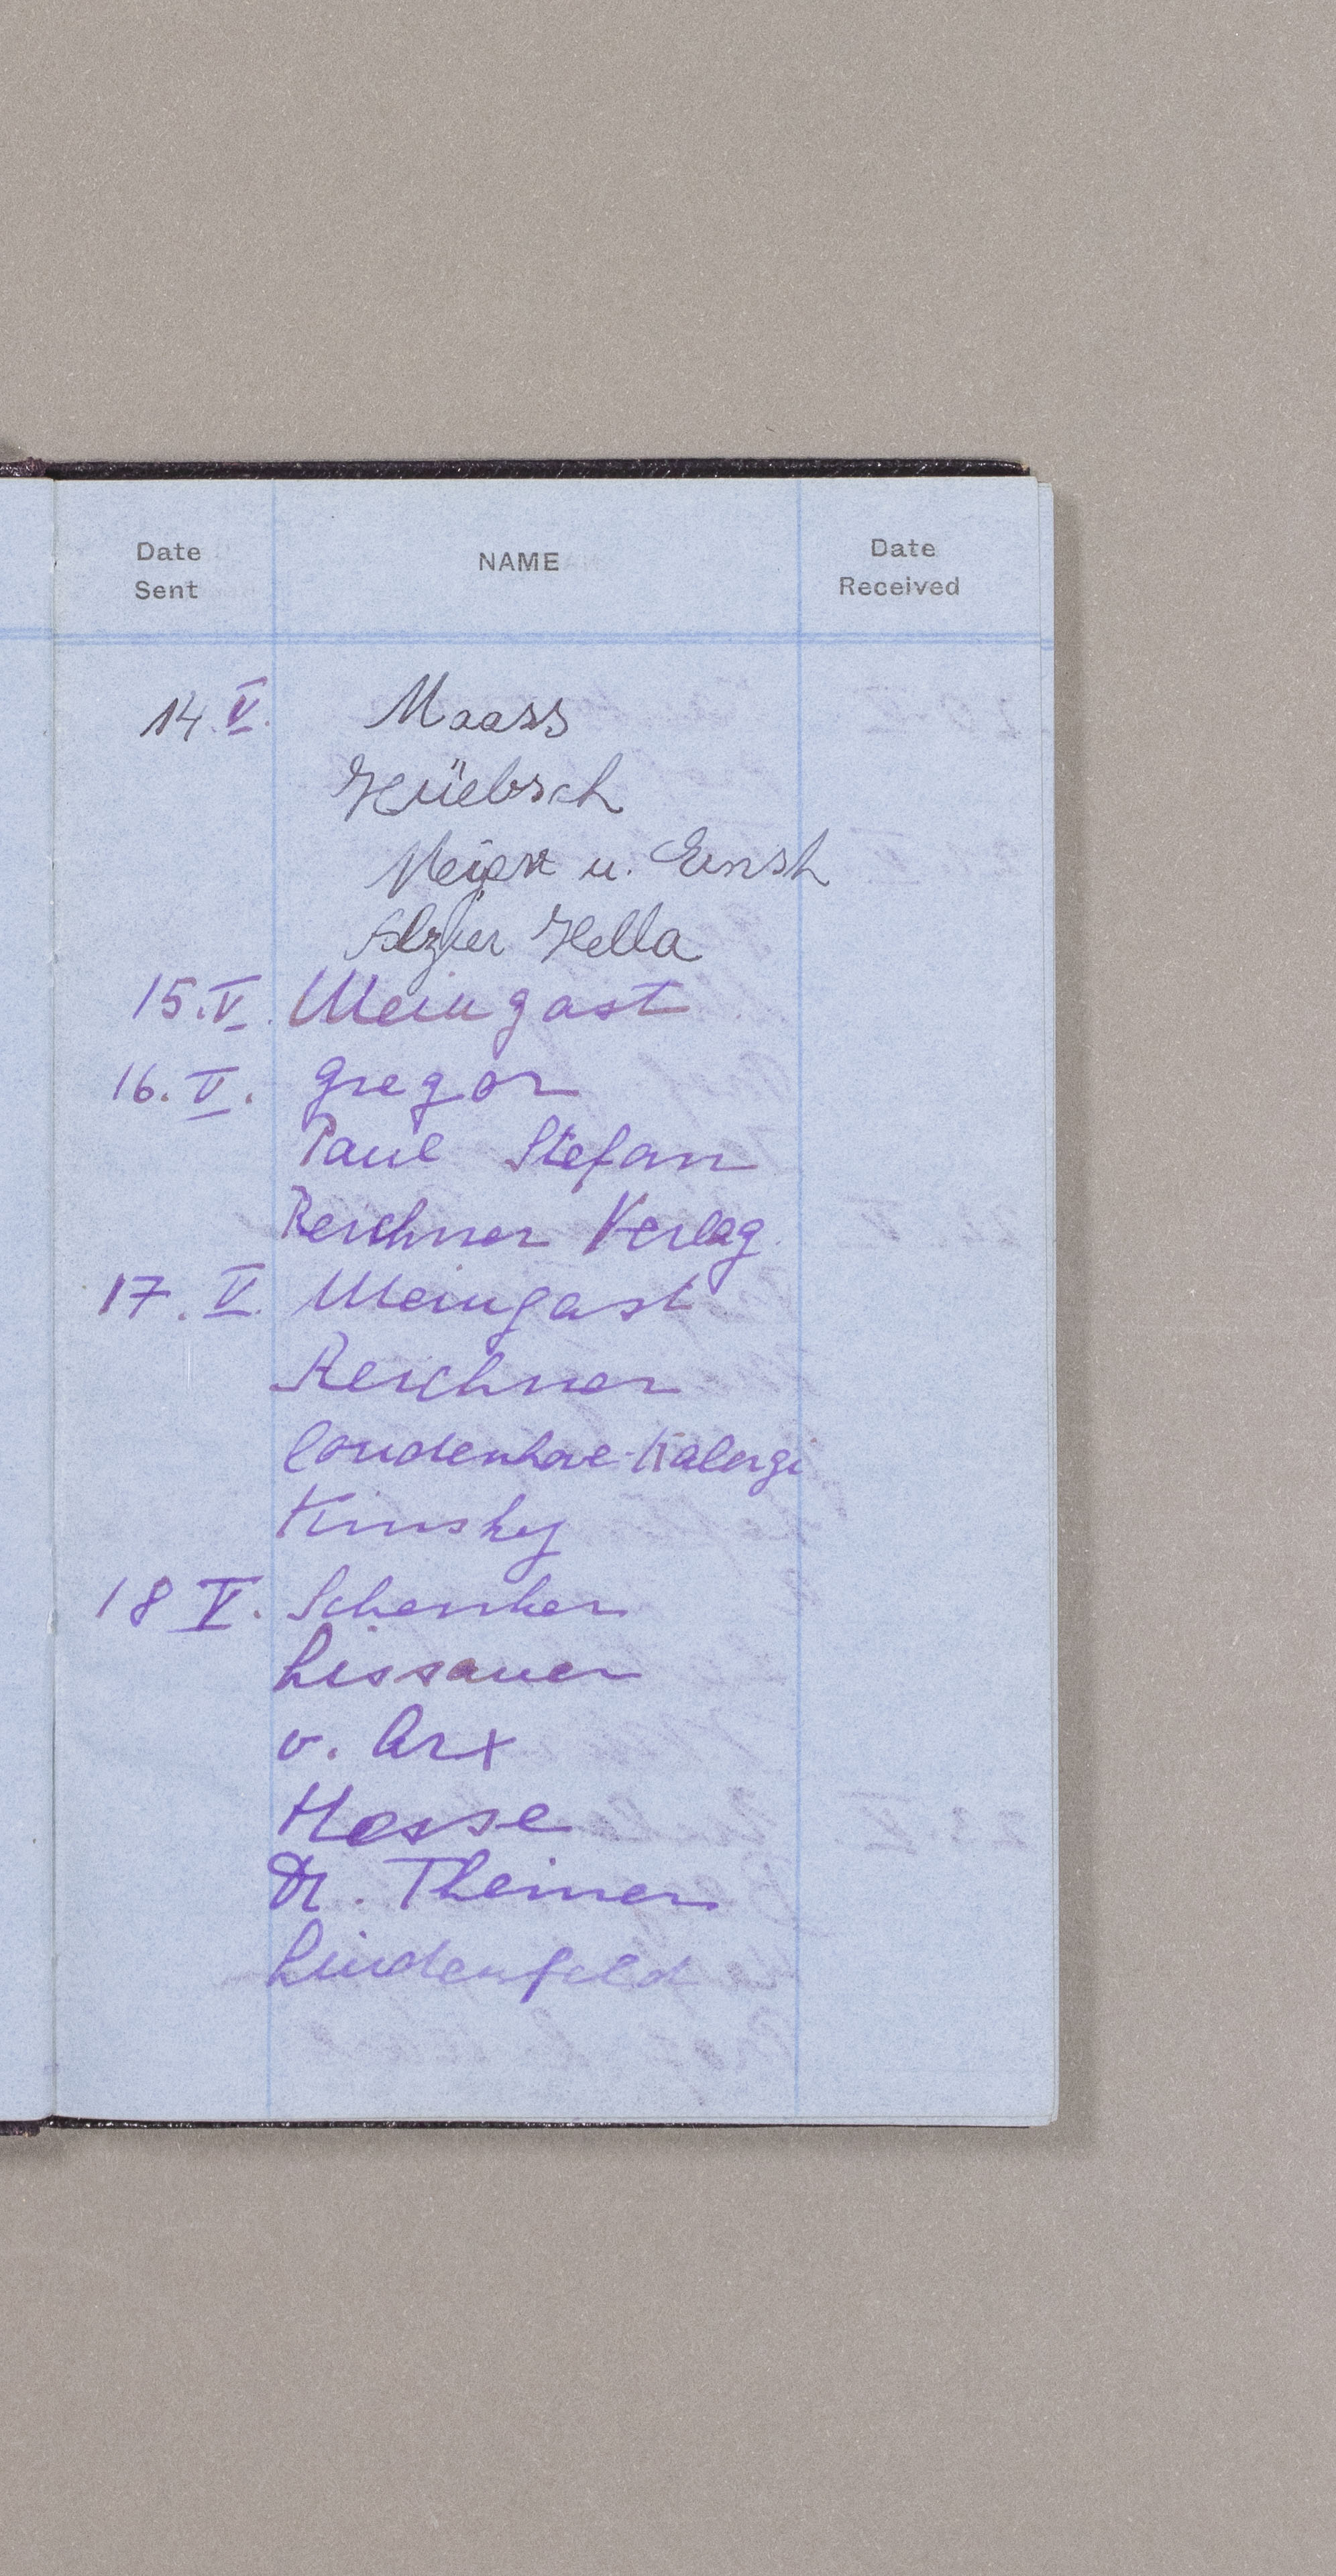 Date Sent NAME Date Received
14. V. Maass
Hüebsch
Meier u. Ernst
Alzier Hella
15. V. Meingast
16. V. Gregor
Paul Stefan
Reichner Verlag
17. V. Meingast
Reichner
Coudenhove-Kalergi
Kinsky
18 V. Schenker
Lissauer
v. Arx
Hesse
Dr. Theimer
Lindenfeld